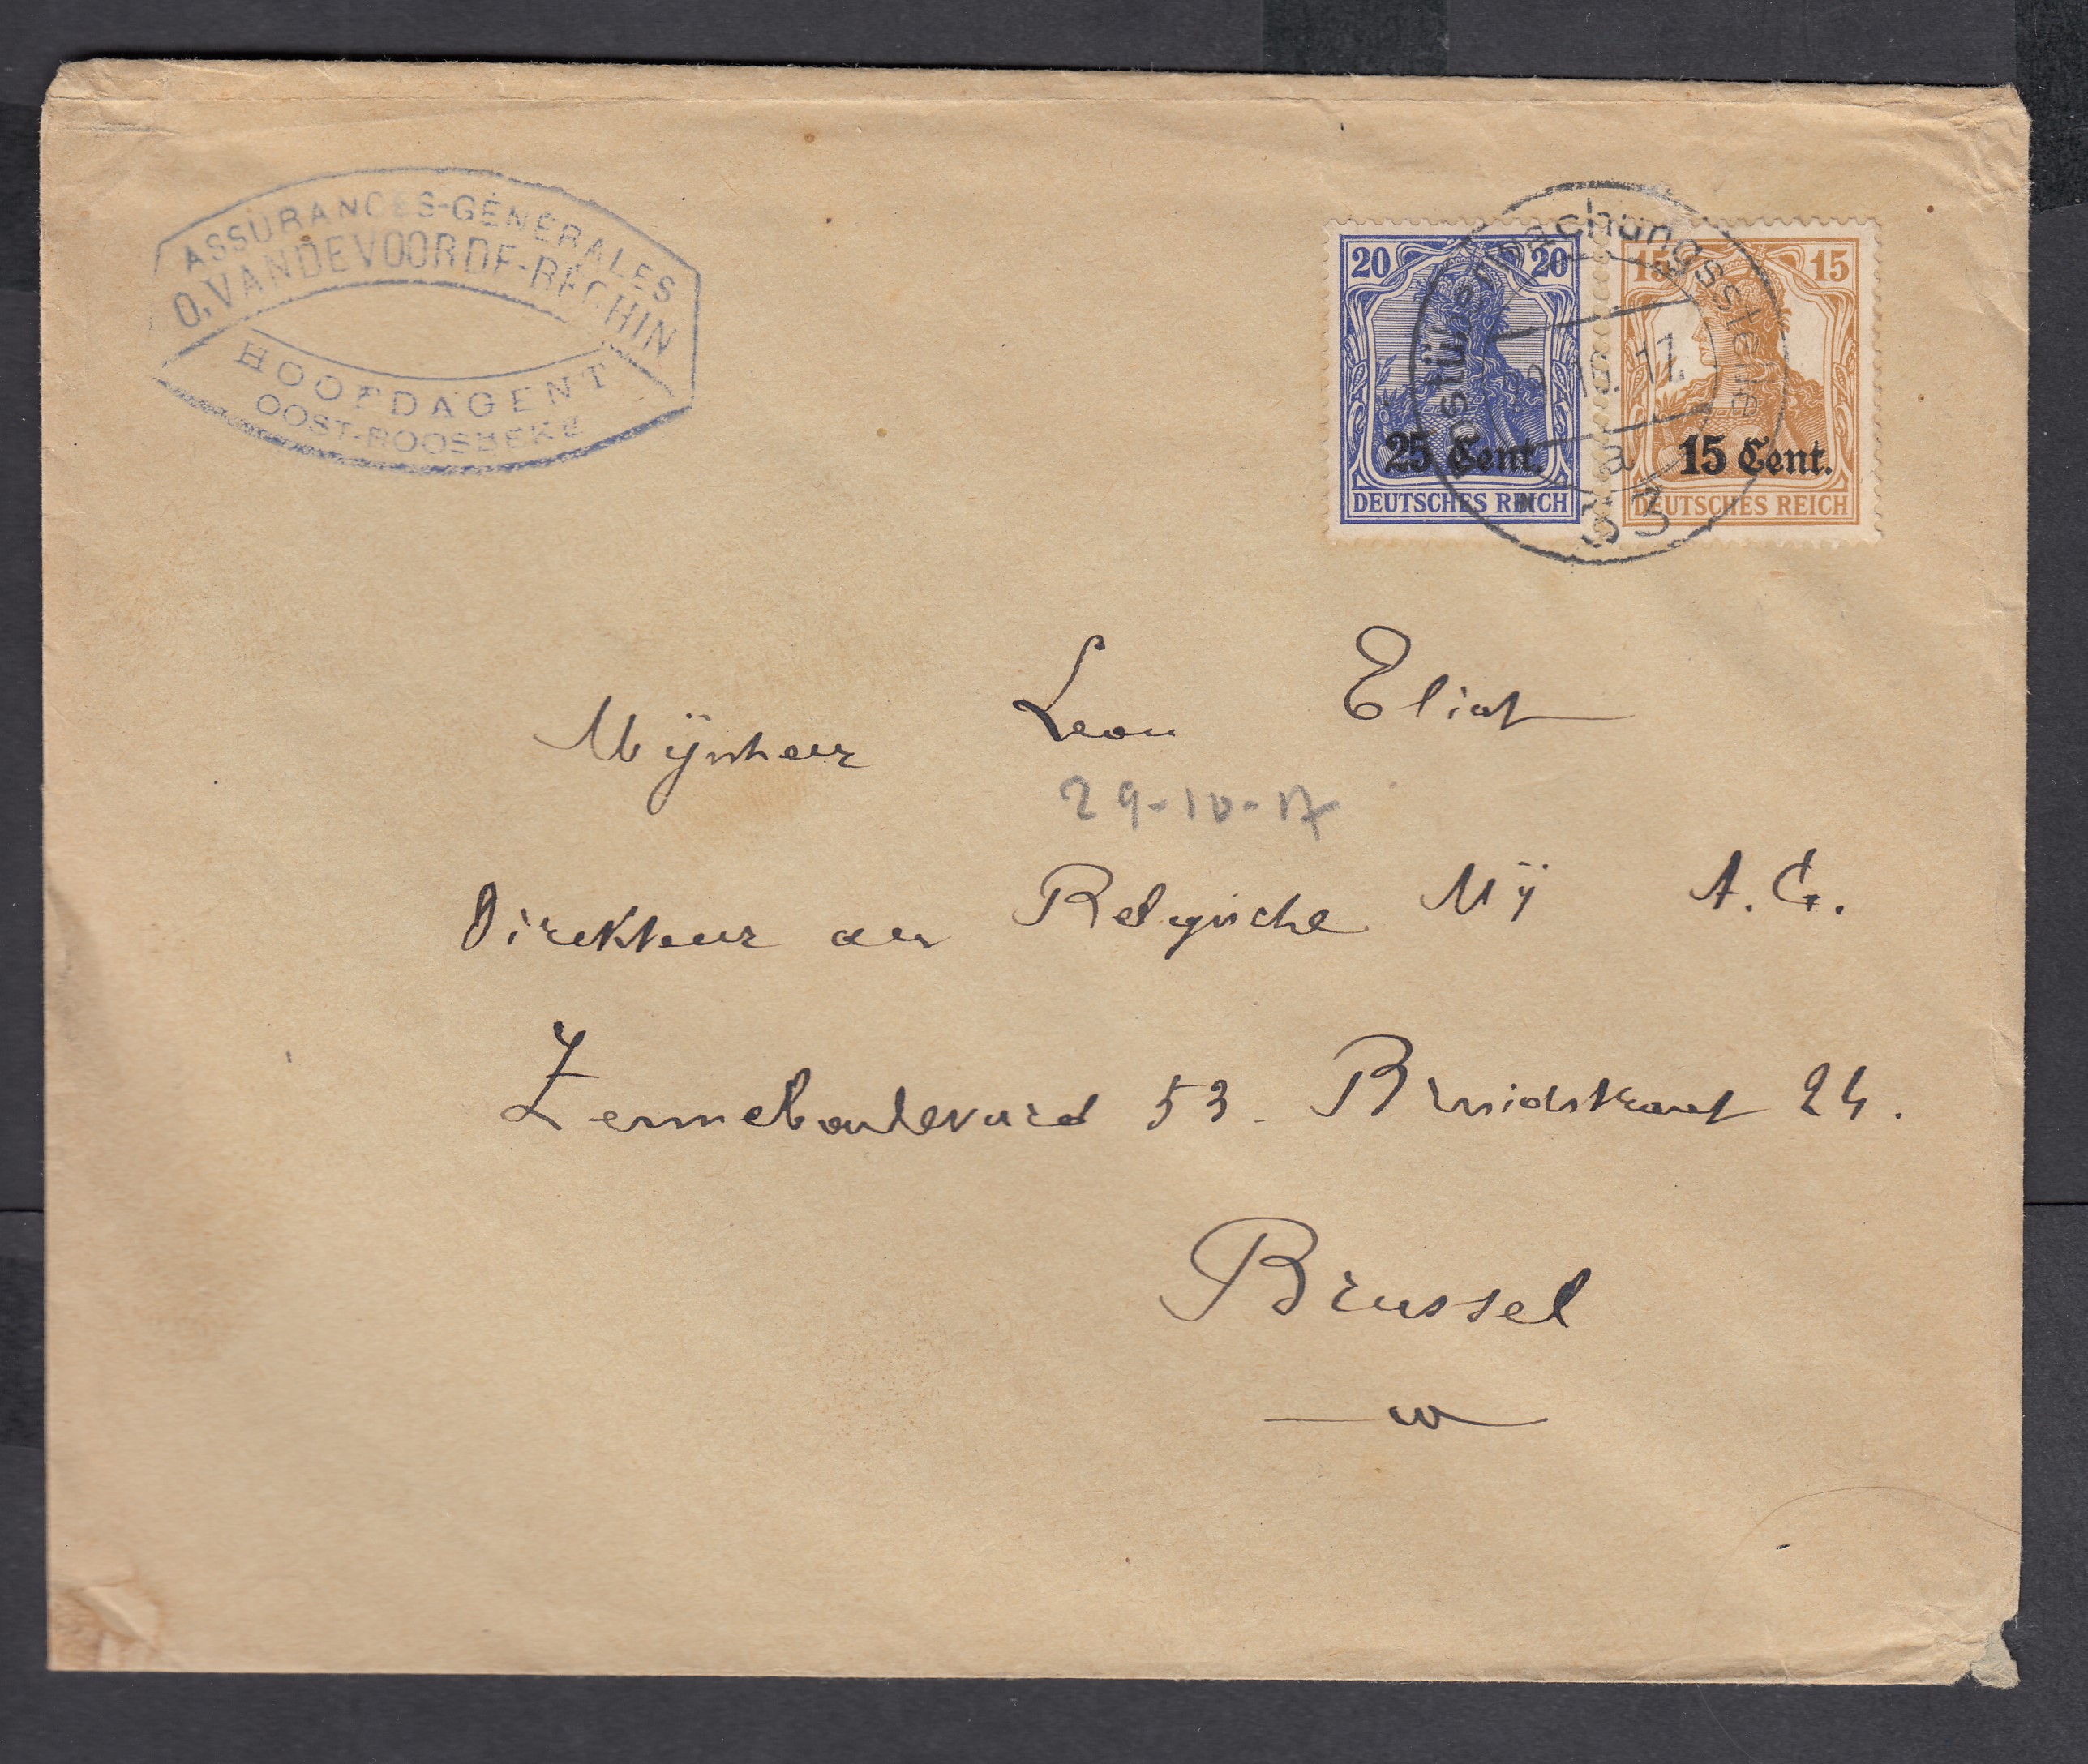 ASSURANCES-GÉNÉRALES
O. VANDEVOORDE-BÉGHIN
HOOFDAGENT
OOST-ROOSBEKE
20 20
25 Cent.
DEUTSCHES REICH
15 15
15 Cent.
DEUTSCHES REICH
Postüberwachungsstelle
10. 17.
a
33
Mijnheer Leon Eliat
29-10-17
Direkteur der Belgische Mij A.G.
Zenneboulevard 53. Bruidstraat 24.
Brussel